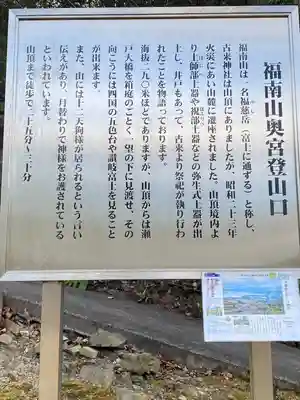 福南山奥宮登山口
福南山は一名福慈岳(富士に通ずる)と称し、
古来神社は山頂にありましたが、昭和二十三年
火災にあい山麓に遷座されました。山頂境内よ
り土師部土器や視部土器などの弥生式土器が出
土し、井戸もあって、古来より祭祀が執り行わ
れたことを物語っております。
海抜二九〇米ほどでありますが、山頂からは瀬
戸大橋を箱庭のごとく一望の下に見渡せ、その
向こうには四国の五色台や讃岐富士を見ること
が出来ます。
また、山には十二天狗様が居られるという言い
伝えがあり、月替わりで神様をお護されている
といわれています。
山頂まで徒歩で二十五分〜三十分